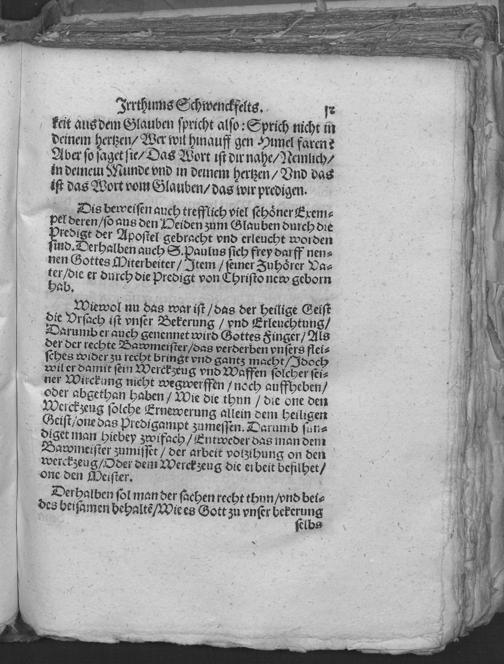 Jrrthums Schwenckfelts. 52
keit aus dem Glauben spricht also: Sprich nicht in
deinem hertzen/ Wer wil hinauff gen Himel faren?
Aber so saget sie/ Das Wort ist dir nahe/ Nemlich/
in deinem Munde vnd in deinem hertzen/ Vnd das
ist das Wort vom Glauben/ das wir predigen.
Dis beweisen auch trefflich viel schöner Exem-
pel deren/ so aus den Heiden zum Glauben durch die
Predigt der Apostel gebracht vnd erleucht worden
sind. Derhalben auch S. Paulus sich frey darff nen-
nen Gottes Miterbeiter/ Jtem/ seiner Zuhörer Va-
ter/ die er durch die Predigt von Christo new geborn
hab.
Wiewol nu das war ist/ das der heilige Geist
die Vrsach ist vnser Bekerung/ vnd Erleuchtung/
Darumb er auch genennet wird Gottes Finger/ Als
der der rechte Bawmeister/ das verderben vnsers flei-
sches wider zu recht bringt vnd gantz macht/ Jdoch
wil er damit sein Werckzeug vnd Waffen solcher sei-
ner Wirckung nicht wegwerffen/ noch auffheben/
oder abgethan haben/ Wie die thun/ die one den
Werckzeug solche Ernewerung allein dem heiligen
Geist/ one das Predigampt zumessen. Darumb sün-
diget man hiebey zwifach/ Entweder das man dem
Bawmeister zumisset/ der arbeit volzihung on den
werckzeug/ Oder dem Werckzeug die erbeit befilhet/
one den Meister.
Derhalben sol man der sachen recht thun/ vnd bei-
des beisamen behaltē/ Wie es Gott zu vnser bekerung
selbs